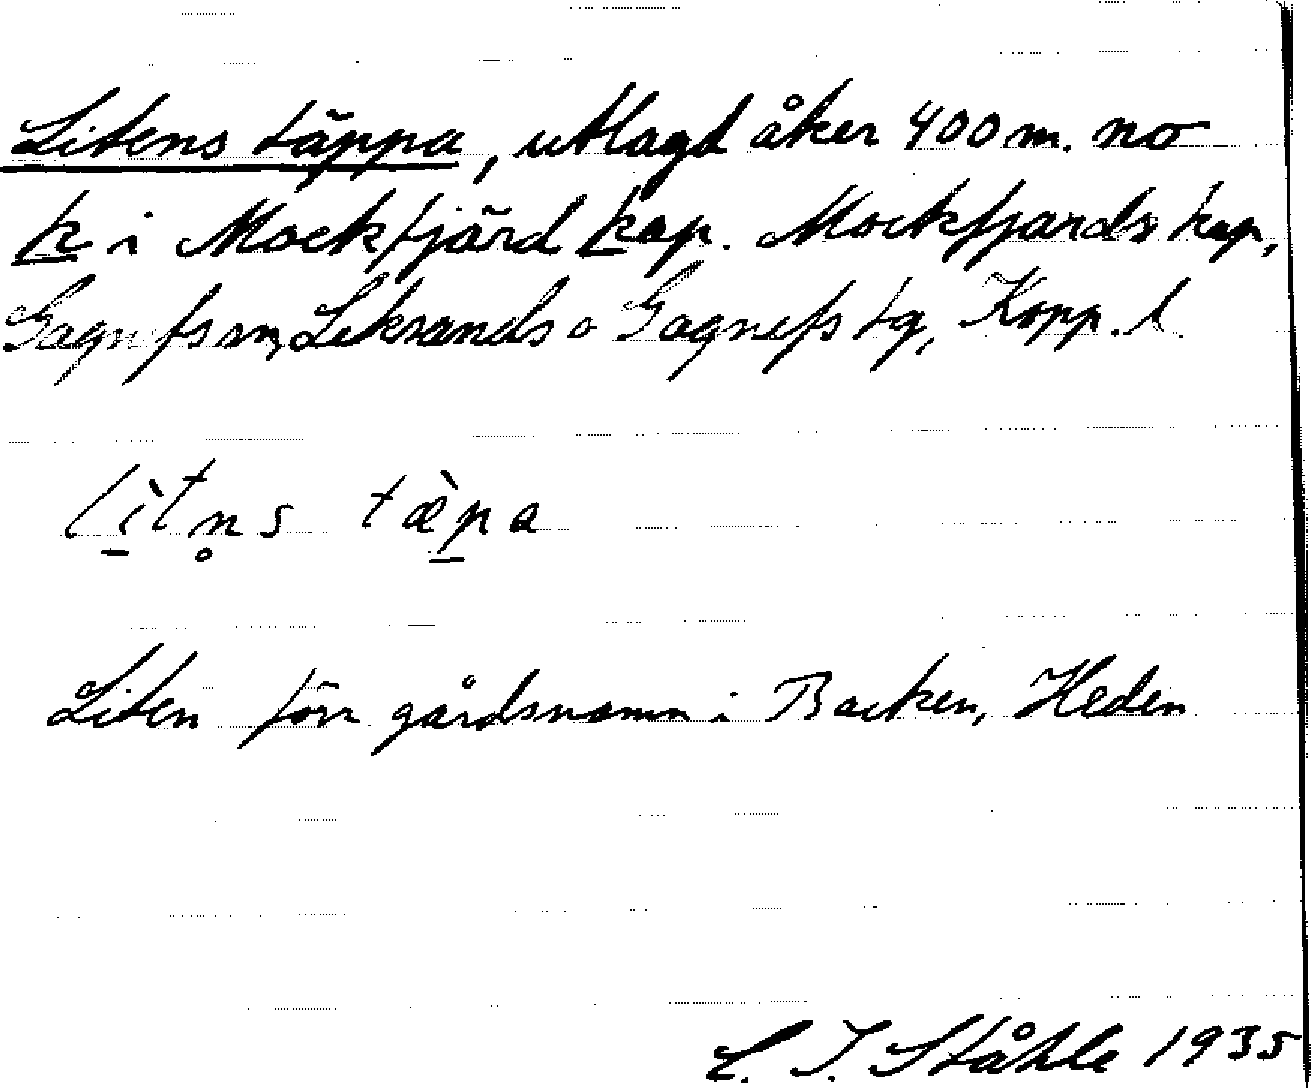 Litens täppa, utlagd åker 400 m. no
k i Mockfjärd kap. Mockfjärds kap,
Gagnefs sn, Leksands o Gagnefs tg, Kopp. l.
lìtn̥s tæ̀pa
Liten förr gårdsnamn i Backen, Heden
C. I. Ståhle 1935